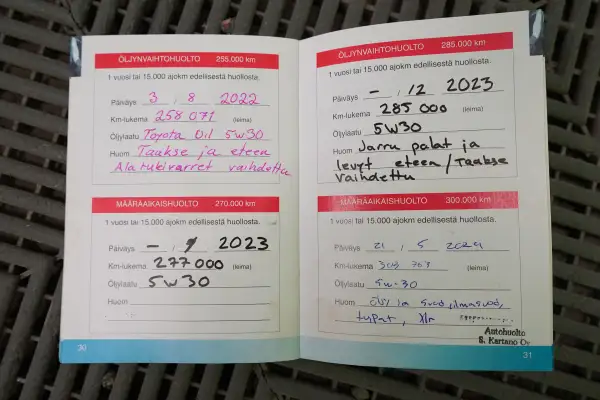 ÖLJYNVAIHTOHUOLTO 255.000 km
1 vuosi tai 15.000 ajokm edellisestä huollosta.
Päiväys 3 / 8 2022
Km-lukema 258 071 (leima)
Öljylaatu Toyota Oil 5W30
Huom Taakse ja eteen
Alatukivarret vaihdettu
MÄÄRÄAIKAISHUOLTO 270.000 km
1 vuosi tai 15.000 ajokm edellisestä huollosta.
Päiväys – / 9 2023
Km-lukema 277 000 (leima)
Öljylaatu 5W30
Huom
30
ÖLJYNVAIHTOHUOLTO 285.000 km
1 vuosi tai 15.000 ajokm edellisestä huollosta.
Päiväys – / 12 2023
Km-lukema 285 000 (leima)
Öljylaatu 5W30
Huom Jarru palat ja
levyt eteen / Taakse
vaihdettu
MÄÄRÄAIKAISHUOLTO 300.000 km
1 vuosi tai 15.000 ajokm edellisestä huollosta.
Päiväys 21 / 5 2024
Km-lukema (leima)
Öljylaatu 5w-30
Huom Öljy ja suod, ilmasuod,
Autohuolto
S. Kartano Oy
31